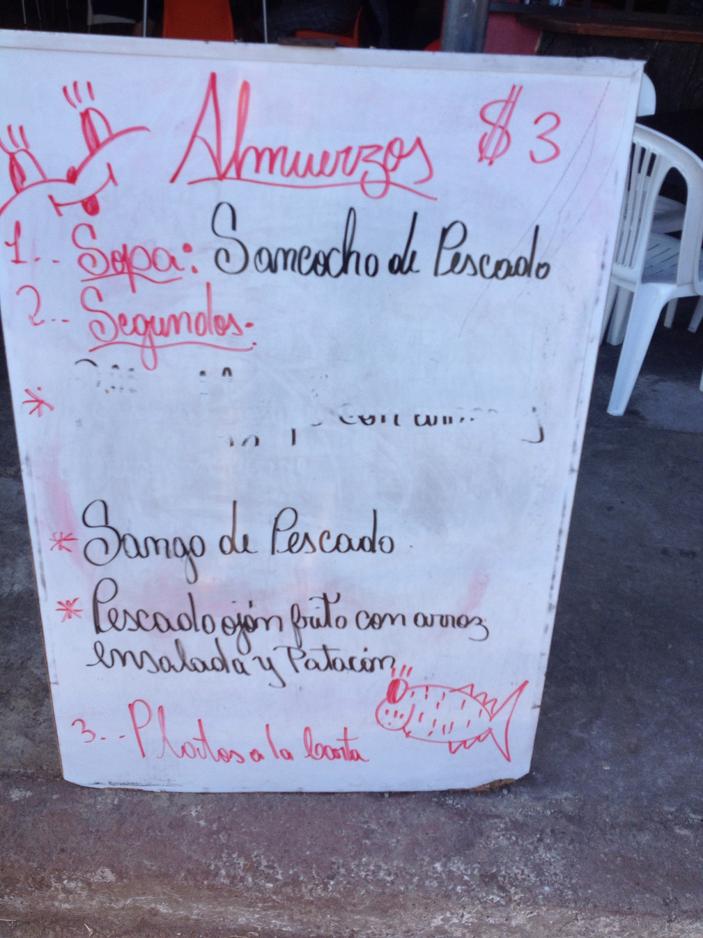 Almuerzos $3
1.. Sopa: Sancocho de Pescado
2.. Segundos.
*
* Sango de Pescado
* Pescado ojón frito con arroz
ensalada y Patacón
3.. Platos a la carta